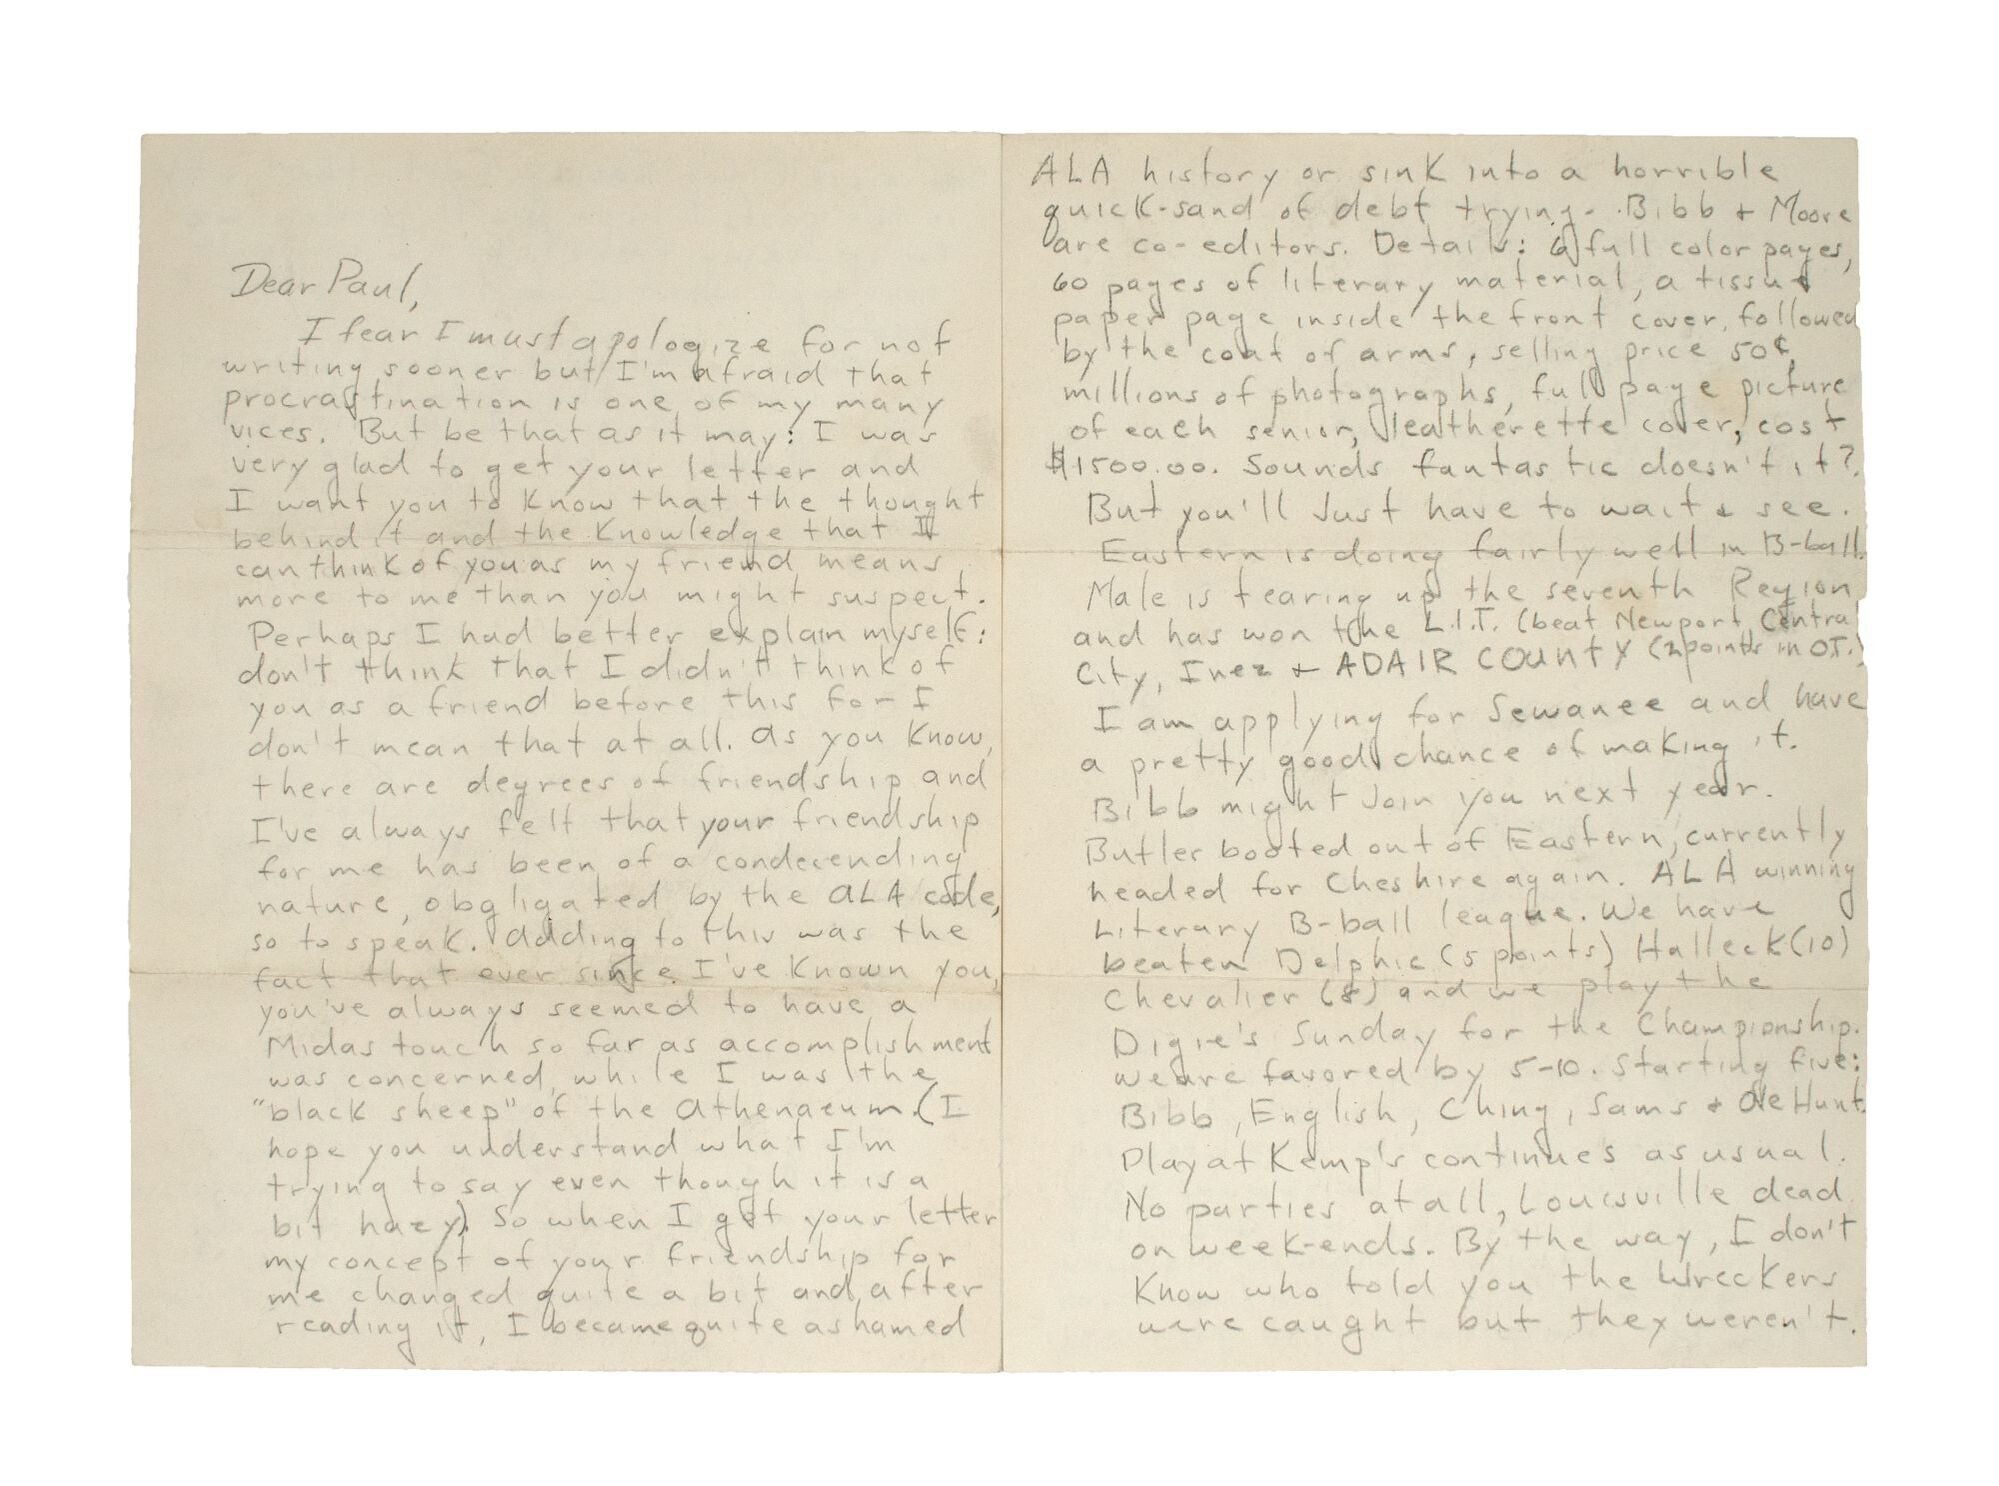 Dear Paul,
I fear I must apologize for not
writing sooner but I'm afraid that
procrastination is one of my many
vices. But be that as it may: I was
very glad to get your letter and
I want you to know that the thought
behind it and the knowledge that I
can think of you as my friend means
more to me than you might suspect.
Perhaps I had better explain myself:
don't think that I didn't think of
you as a friend before this for I
don't mean that at all. As you know,
there are degrees of friendship and
I've always felt that your friendship
for me has been of a condecending
nature, obgligated by the ALA code,
so to speak. Adding to this was the
fact that ever since I've known you,
you've always seemed to have a
Midas touch so far as accomplishment
was concerned, while I was the
"black sheep" of the Athenaeum. (I
hope you understand what I'm
trying to say even though it is a
bit hazy). So when I got your letter
my concept of your friendship for
me changed quite a bit and, after
reading it, I became quite ashamed
ALA history or sink into a horrible
quick-sand of debt trying. Bibb + Moore
are co-editors. Details: 6 full color pages,
60 pages of literary material, a tissue
paper page inside the front cover, followed
by the coat of arms, selling price 50¢,
millions of photographs, full page picture
of each senior, leatherette cover, cost
$1500.00. Sounds fantastic doesn't it?
But you'll just have to wait & see.
Eastern is doing fairly well in B-ball.
Male is tearing up the seventh Region
and has won the L.I.T. (beat Newport, Central
City, Inez + ADAIR COUNTY (2 points in OT.)
I am applying for Sewanee and have
a pretty good chance of making it.
Bibb might join you next year.
Butler booted out of Eastern, currently
headed for Cheshire again. ALA winning
Literary B-ball league. We have
beaten Delphic (5 points) Halleck (10)
Chevalier (8) and we play the
Digie's Sunday for the Championship.
We are favored by 5-10. Starting five:
Bibb, English, Ching, Sams + DeHunt.
Play at Kemp's continues as usual.
No parties at all, Louisville dead
on week-ends. By the way, I don't
know who told you the Wreckers
were caught but they weren't.